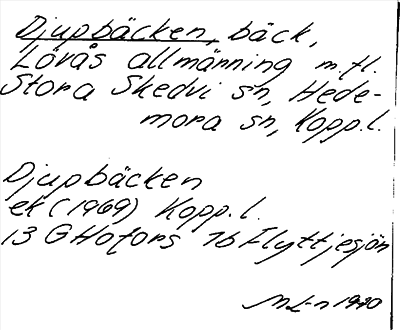 Djupbäcken, bäck,
Lövås allmänning m.fl.
Stora Skedvi sn, Hede-
mora sn, Kopp.l.
Djupbäcken
ek (1969) Kopp.l.
13 G Hofors 7b Flyttjesjön
1970